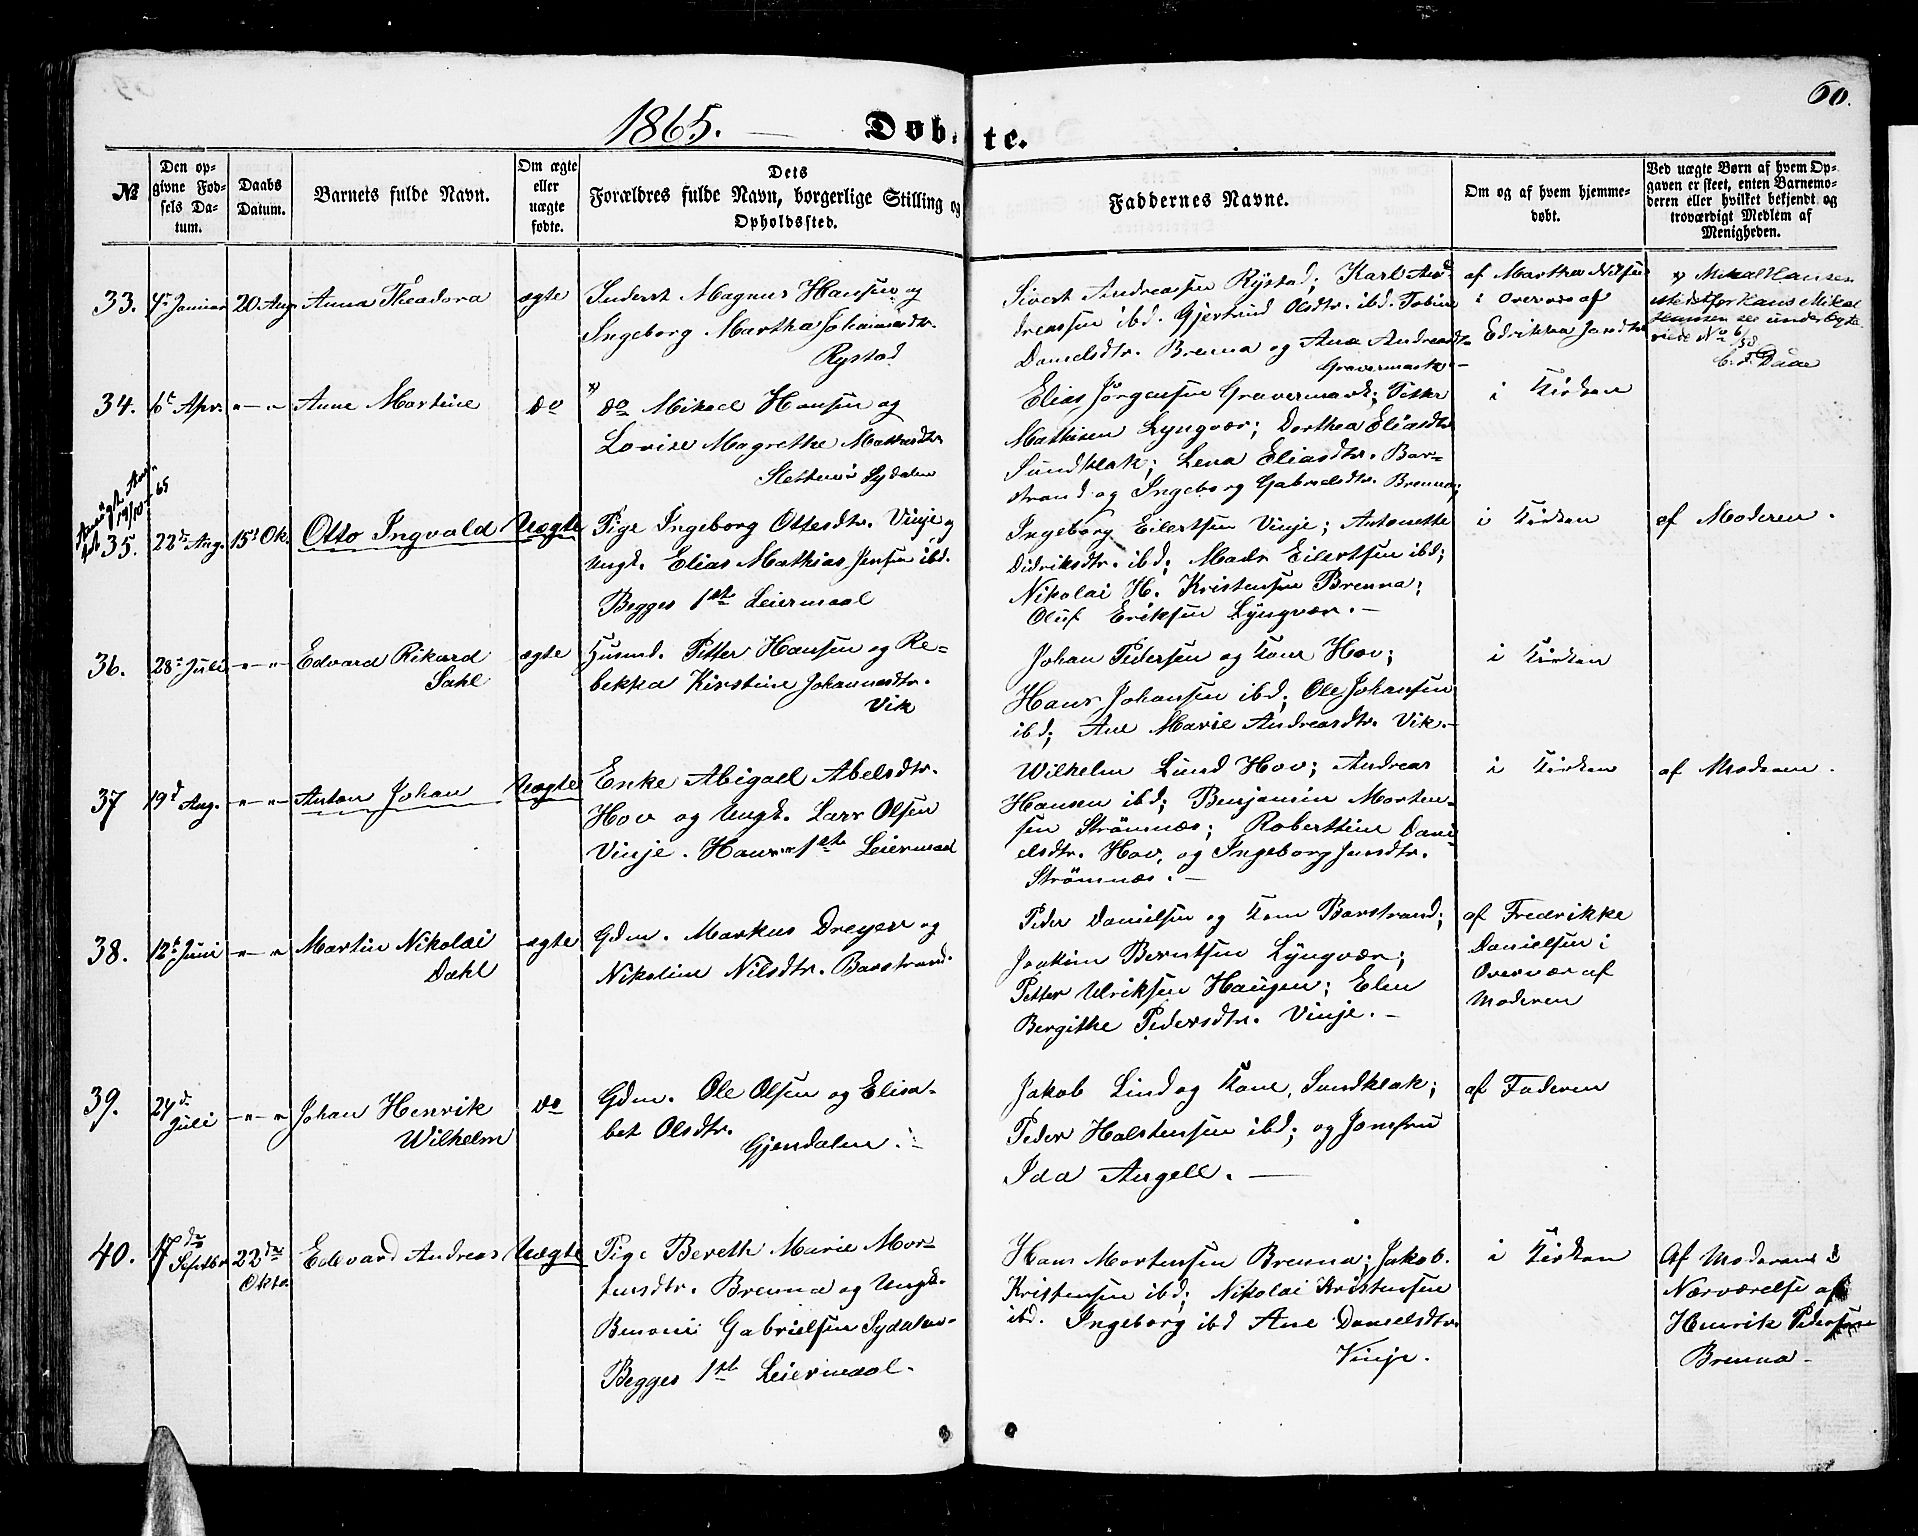 60.
1865. — Døb- te.
No
Den opgivne Fødsels Datum.
Daabs Datum.
Barnets fulde Navn.
Om ægte eller uægte fødte.
Dets Forældres fulde Navn, borgerlige Stilling og Opholdssted.
Faddernes Navne.
Om og af hvem hjemmedøbt.
Ved uægte Børn af hvem Opgaven er skeet, enten Barnemoderen eller hvilket bekjendt og troværdigt Medlem af Menigheden.
33.
Januar
20 Aug
Anna Theodora
ægte
Inderst Magnus Hansen og
Ingeborg Martha
Rystad
Sivert Andreassen Rystad; Karl An-
dreassen ibd. Gjertrud Olsdtr. ibd. Tobine
Danielsdtr. Brenna og Ane Andreasdtr
Gravermark
af Martha Nilsen
i Overvær af
Edrikka
x) Mikal Hansen
istedetfor Hans Mikal
Hanssen see
C. F. Daae
34.
6t Apr.
" — "
Anne Martine
do
x)
do Mikael Hansen og
Lovise Magrethe
Slettenes Sydalen
Elias Jørgensen Gravermark; Petter
Mathisen Lyngvær; Dorthea Eliasdtr
Sundklak; Lena Eliasdtr. Bar-
strand og Ingeborg Gabrielsdtr. Brenna;
i Kirken
19/10 65
35.
22d Aug.
15d Ok.
Otto Ingvald
Uægte
Pige Ingeborg Ottesdtr. Vinje og
Ungk. Elias Mathias Jensen ibd.
Begges 1ste Leiermaal
Ingeborg Eilertsen Vinje; Antonette
Didriksdtr. ibd; Mads Eilertsen ibd;
Nikolai H. Kristensen Brenna;
Oluf Eriksen Lyngvær. —
i Kirken
af Moderen.
36.
28 Juli
" — "
Edvard Rikard
Dahl
ægte
Husmd. Petter Hansen og Re-
bekka Kirstine Johannesdtr.
Vik
Johan Pedersen og Kone Hov;
Hans Johansen ibd; Ole Johansen
ibd; Ane Marie Andreasdtr. Vik. —
i Kirken
37
19d Aug.
" — "
Anton Johan
Uægte
Enke Abigael Abelsdtr.
Hov og Ungk. Lars Olsen
Vinje. Hans 1ste Leiermaal
Wilhelm Lund Hov; Andreas
Hansen ibd; Benjamin Morten-
sen Strømnæs; Roberttine Dani-
elsdtr. Hov, og Ingeborg Jensdtr.
Strømnæs. —
i Kirken
af Moderen.
38.
12t Juni
" — "
Martin Nikolai
Dahl
ægte
Gdm. Markus Dreyer og
Nikoline Nilsdtr. Barstrand.
Peder Danielsen og Kone Barstrand;
Joakim Berntsen Lyngvær;
Petter Ulriksen Haugen; Elen
Bergithe Pedersdtr. Vinje. —
af Fredrikke
Danielsen i
Overvær af
Moderen
39.
24d
Juli
" — "
Johan Henrik
Wilhelm
do
Gdm. Ole Olsen og Elisa-
bet Olsdtr.
Gjendalen.
Jakob Lind og Kone, Sundklak;
Peder Halstensen ibd; og Jomfru
Ida Angell. —
af Faderen
40.
17de
Septbr
22de
Oktr.
Edevard Andreas
Uægte
Pige Bereth Marie Mor-
tensdtr. Brenna og Ungk.
Benoni Gabrielsen Sydalen.
Begges 1st Leiermaal.
Hans Mortensen Brenna; Jakob
Kristensen ibd; Nikolai Kristensen
ibd. Ingeborg ibd Ane Danielsdtr
Vinje.
i Kirken
Af Moderen i
Nærværelse af
Henrik Pedersen
Brenna.